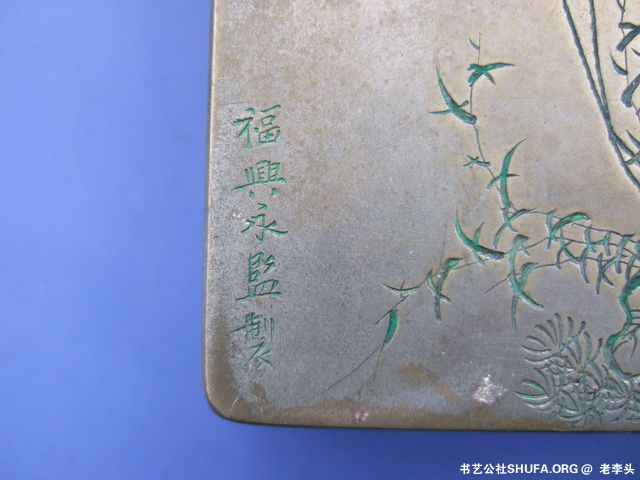 福興永監製
书艺公社SHUFA.ORG @ 老李头